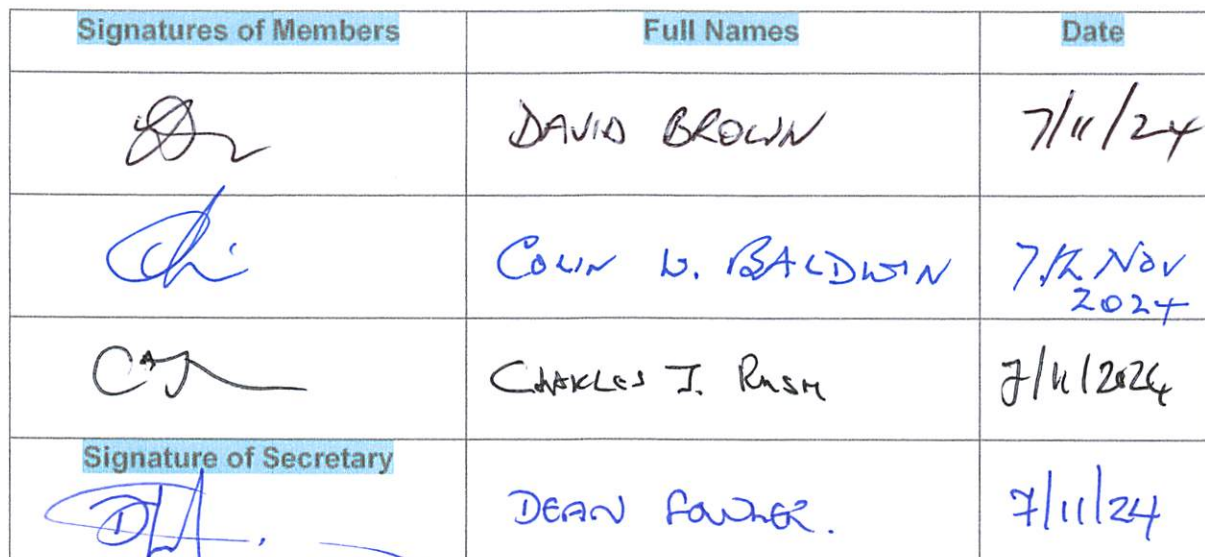 Signatures of Members Full Names Date
DAVID BROWN 7/11/24
COLIN W. BALDWIN 7th Nov
2024
CHARLES J. RUSH 7/11/2024
Signature of Secretary
DEAN FOWLER. 7/11/24